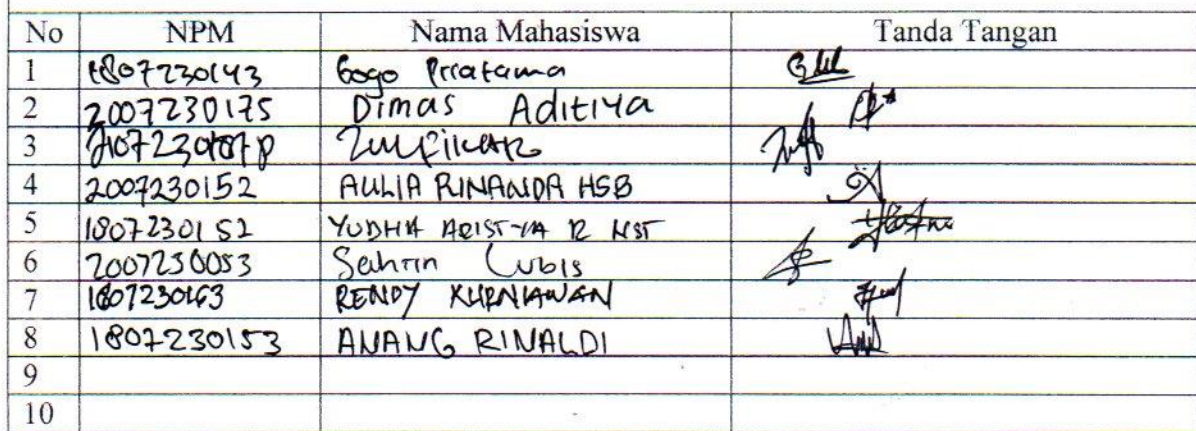 No NPM Nama Mahasiswa Tanda Tangan
1 1807230143 Gogo Priatama
2 2007230175 Dimas Aditiya
3 Zulfikar
4 2007230152 AULIA RINANDA HSB
5 1807230152 YUDHA ARISTYA R NST
6 2007230053 Sahrin Lubis
7 1807230163 RENDY KURNIAWAN
8 1807230153 ANANG RINALDI
9
10